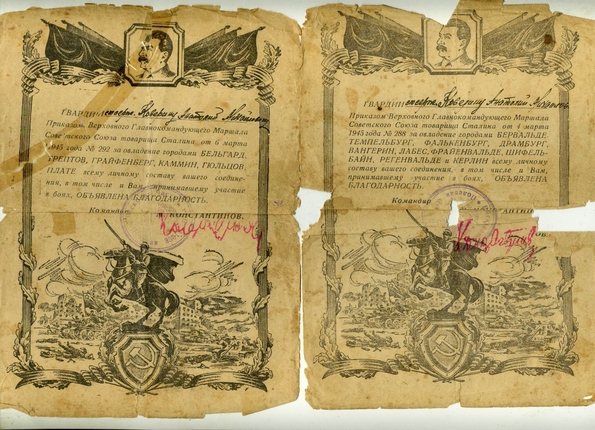 ГВАРДИИ
Приказом Верховного Главнокомандующего Маршала
Советского Союза товарища Сталина от 6 марта
1945 года № 292 за овладение городами БЕЛЬГАРД,
ТРЕПТОВ, ГРАЙФЕНБЕРГ, КАММИН, ГЮЛЬЦОВ,
ПЛАТЕ всему личному составу вашего соедине-
ния, в том числе и Вам, принимавшему участие
в боях, ОБЪЯВЛЕНА БЛАГОДАРНОСТЬ.
Командир
КОНСТАНТИНОВ.
ГВАРДИИ
Приказом Верховного Главнокомандующего Маршала
Советского Союза товарища Сталина от 4 марта
1945 года № 288 за овладение городами БЕРВАЛЬДЕ,
ТЕМПЕЛЬБУРГ, ФАЛЬКЕНБУРГ, ДРАМБУРГ,
ВАНГЕРИН, ЛАБЕС, ФРАЙЕНВАЛЬДЕ, ШИФЕЛЬ-
БАЙН, РЕГЕНВАЛЬДЕ и КЕРЛИН всему личному
составу вашего соединения, в том числе и Вам,
принимавшему участие в боях, ОБЪЯВЛЕНА
БЛАГОДАРНОСТЬ.
Командир